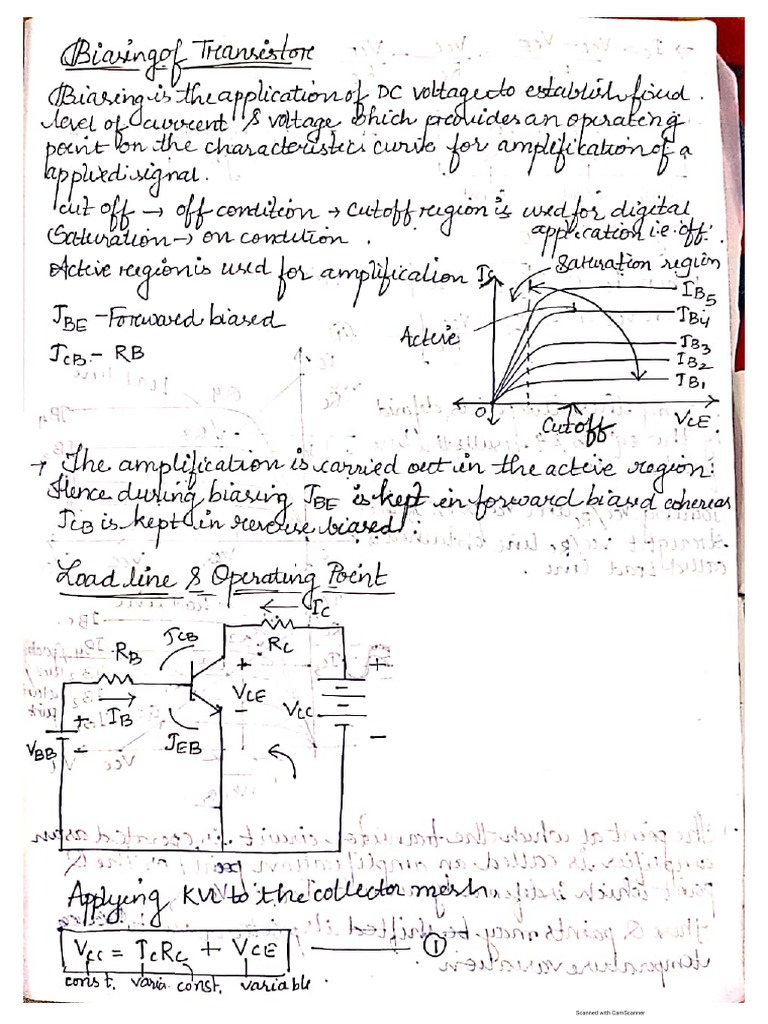 Biasing of Transistor
Biasing is the application of DC voltage to establish fixed
level of current & voltage which provides an operating
point on the characteristics curve for amplification of a
applied signal.
cut off → off condition → Cutoff region is used for digital
application i.e. off.
Saturation → on condition.
Active region is used for amplification
JBE - Forward biased
JCB - RB
IC
Saturation region
Active
IB5
IB4
IB3
IB2
IB1
O
VCE
Cutoff
→ The amplification is carried out in the active region.
Hence during biasing JBE is kept in forward biased whereas
JCB is kept in reverse biased.
Load line & Operating Point
← IC
RC
JCB
RB
+
VCE
-
VCC
+
-
IB
JEB
VBB
+
-
Applying KVL to the collector mesh
VCC = ICRC + VCE ——— ①
const. varia. const. variable.
Scanned with CamScanner